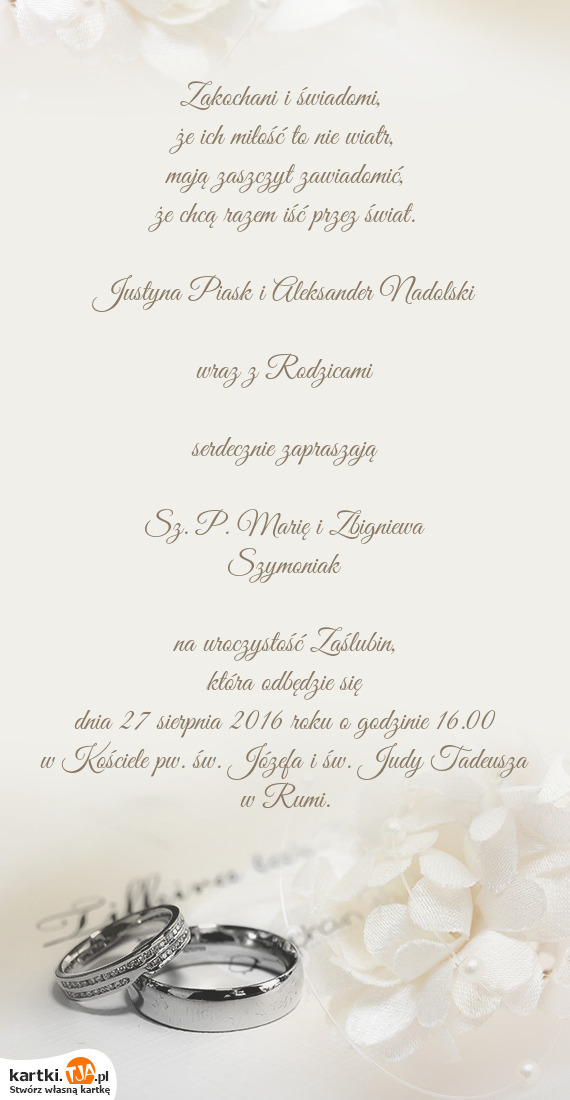 Zakochani i świadomi,
że ich miłość to nie wiatr,
mają zaszczyt zawiadomić,
że chcą razem iść przez świat.
Justyna Piask i Aleksander Nadolski
wraz z Rodzicami
serdecznie zapraszają
Sz. P. Marię i Zbigniewa
Szymoniak
na uroczystość Zaślubin,
która odbędzie się
dnia 27 sierpnia 2016 roku o godzinie 16.00
w Kościele pw. św. Józefa i św. Judy Tadeusza
w Rumi.
kartki.TJA.pl
Stwórz własną kartkę